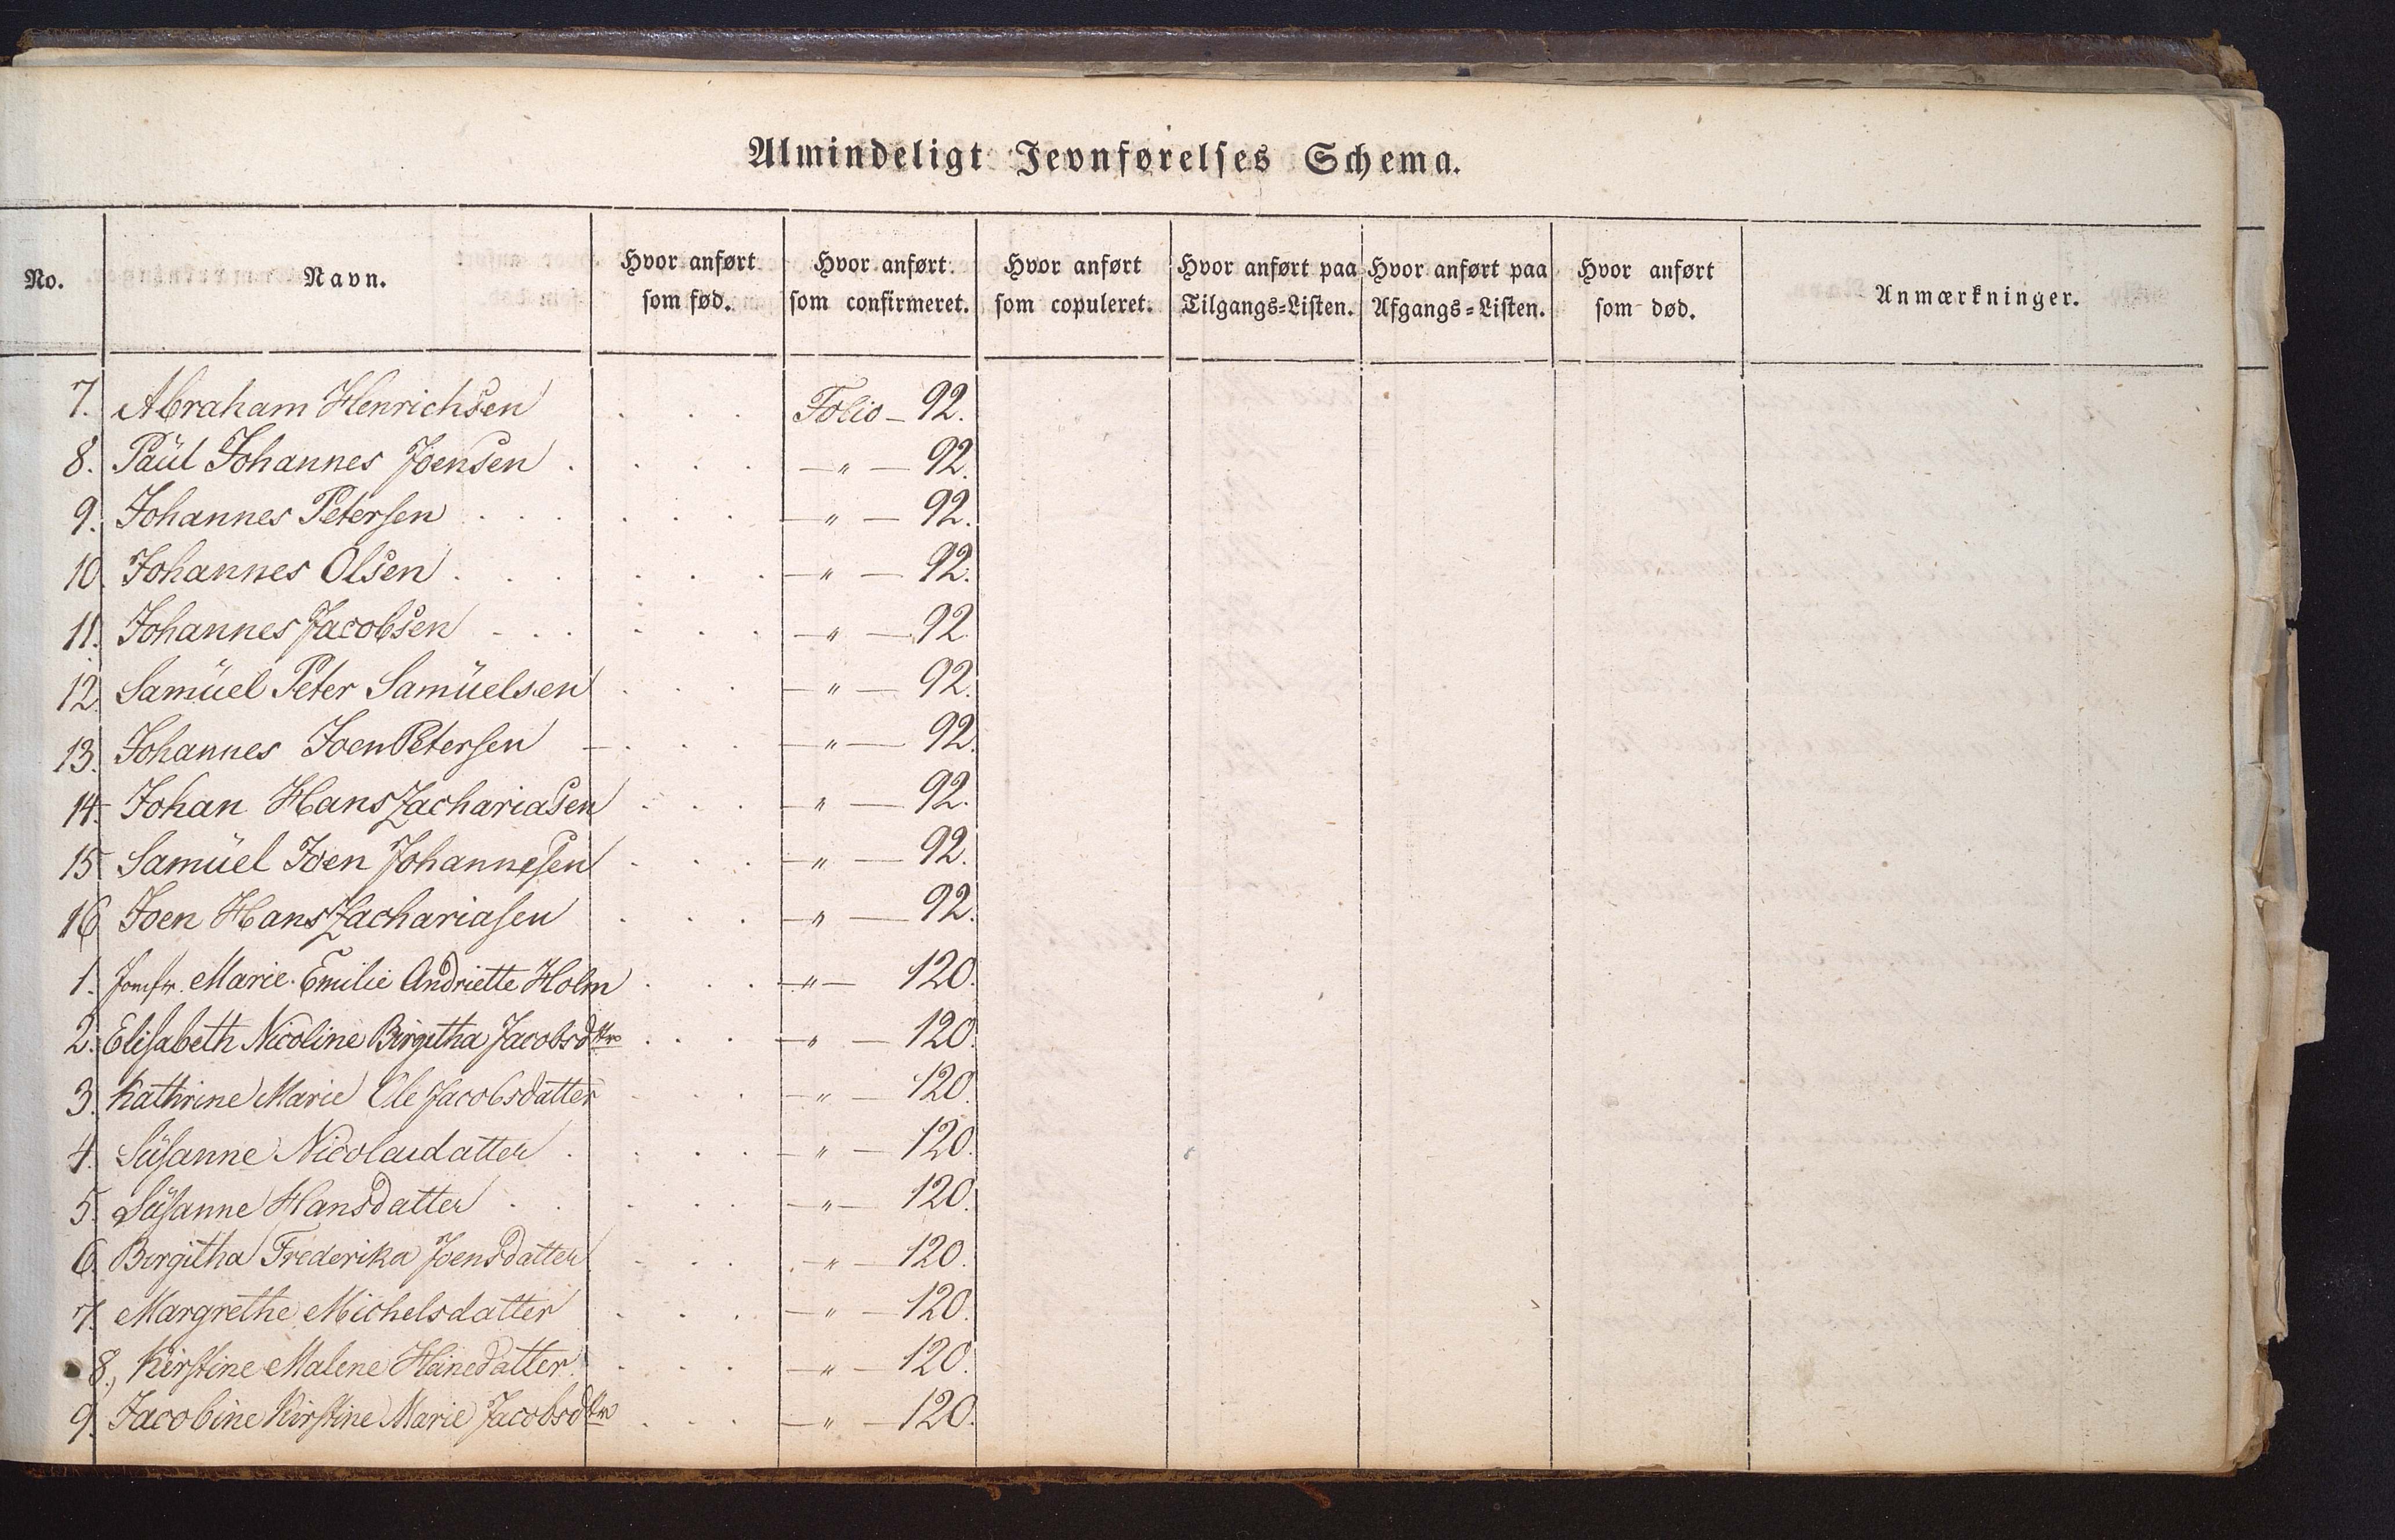 Almindeligt Jevnførelses Schema.
No. Navn. Hvor anført som fød. Hvor anført som confirmeret. Hvor anført som copuleret. Hvor anført paa Tilgangs=Listen. Hvor anført paa Afgangs=Listen. Hvor anført som død. Anmærkninger.
7. Abraham Henrichsen . . . Folio - 92.
8. Paül Johannes Joensen . . . . . — " — 92.
9. Johannes Petersen . . . . . . — " — 92.
10. Johannes Olsen . . . . . . — " — 92.
11. Johannes Jacobsen . . . . . . — " — 92
12. Samüel Peter Samüelsen . . . — " — 92.
13. Johannes Joen Petersen — . . . — " — 92.
14. Johan Hans Zachariasen . . . — " — 92.
15 Samüel Joen Johannesen . . . — " — 92.
16 Joen Hans Zachariasen . . . — " — 92.
1. Jomfr. Marie Emilie Andriette Holm . . . — " — 120.
2. Elisabeth Nicoline Birgitha Jacobsdtr . . . — " — 120.
3. Kathrine Marie Ole Jacobsdatter . . . — " — 120.
4. Süsanne Nicolaidatter . . . . — " — 120.
5. Süsanne Hansdatter . . . . — " — 120.
6. Birgitha Frederika Joensdatter . . . — " — 120.
7. Margrethe Michelsdatter . . . — " — 120.
8., Kirstine Malene Hanedatter . . . — " — 120.
9. Jacobine Kirstine Marie Jacobsdtr . . . — " — 120.